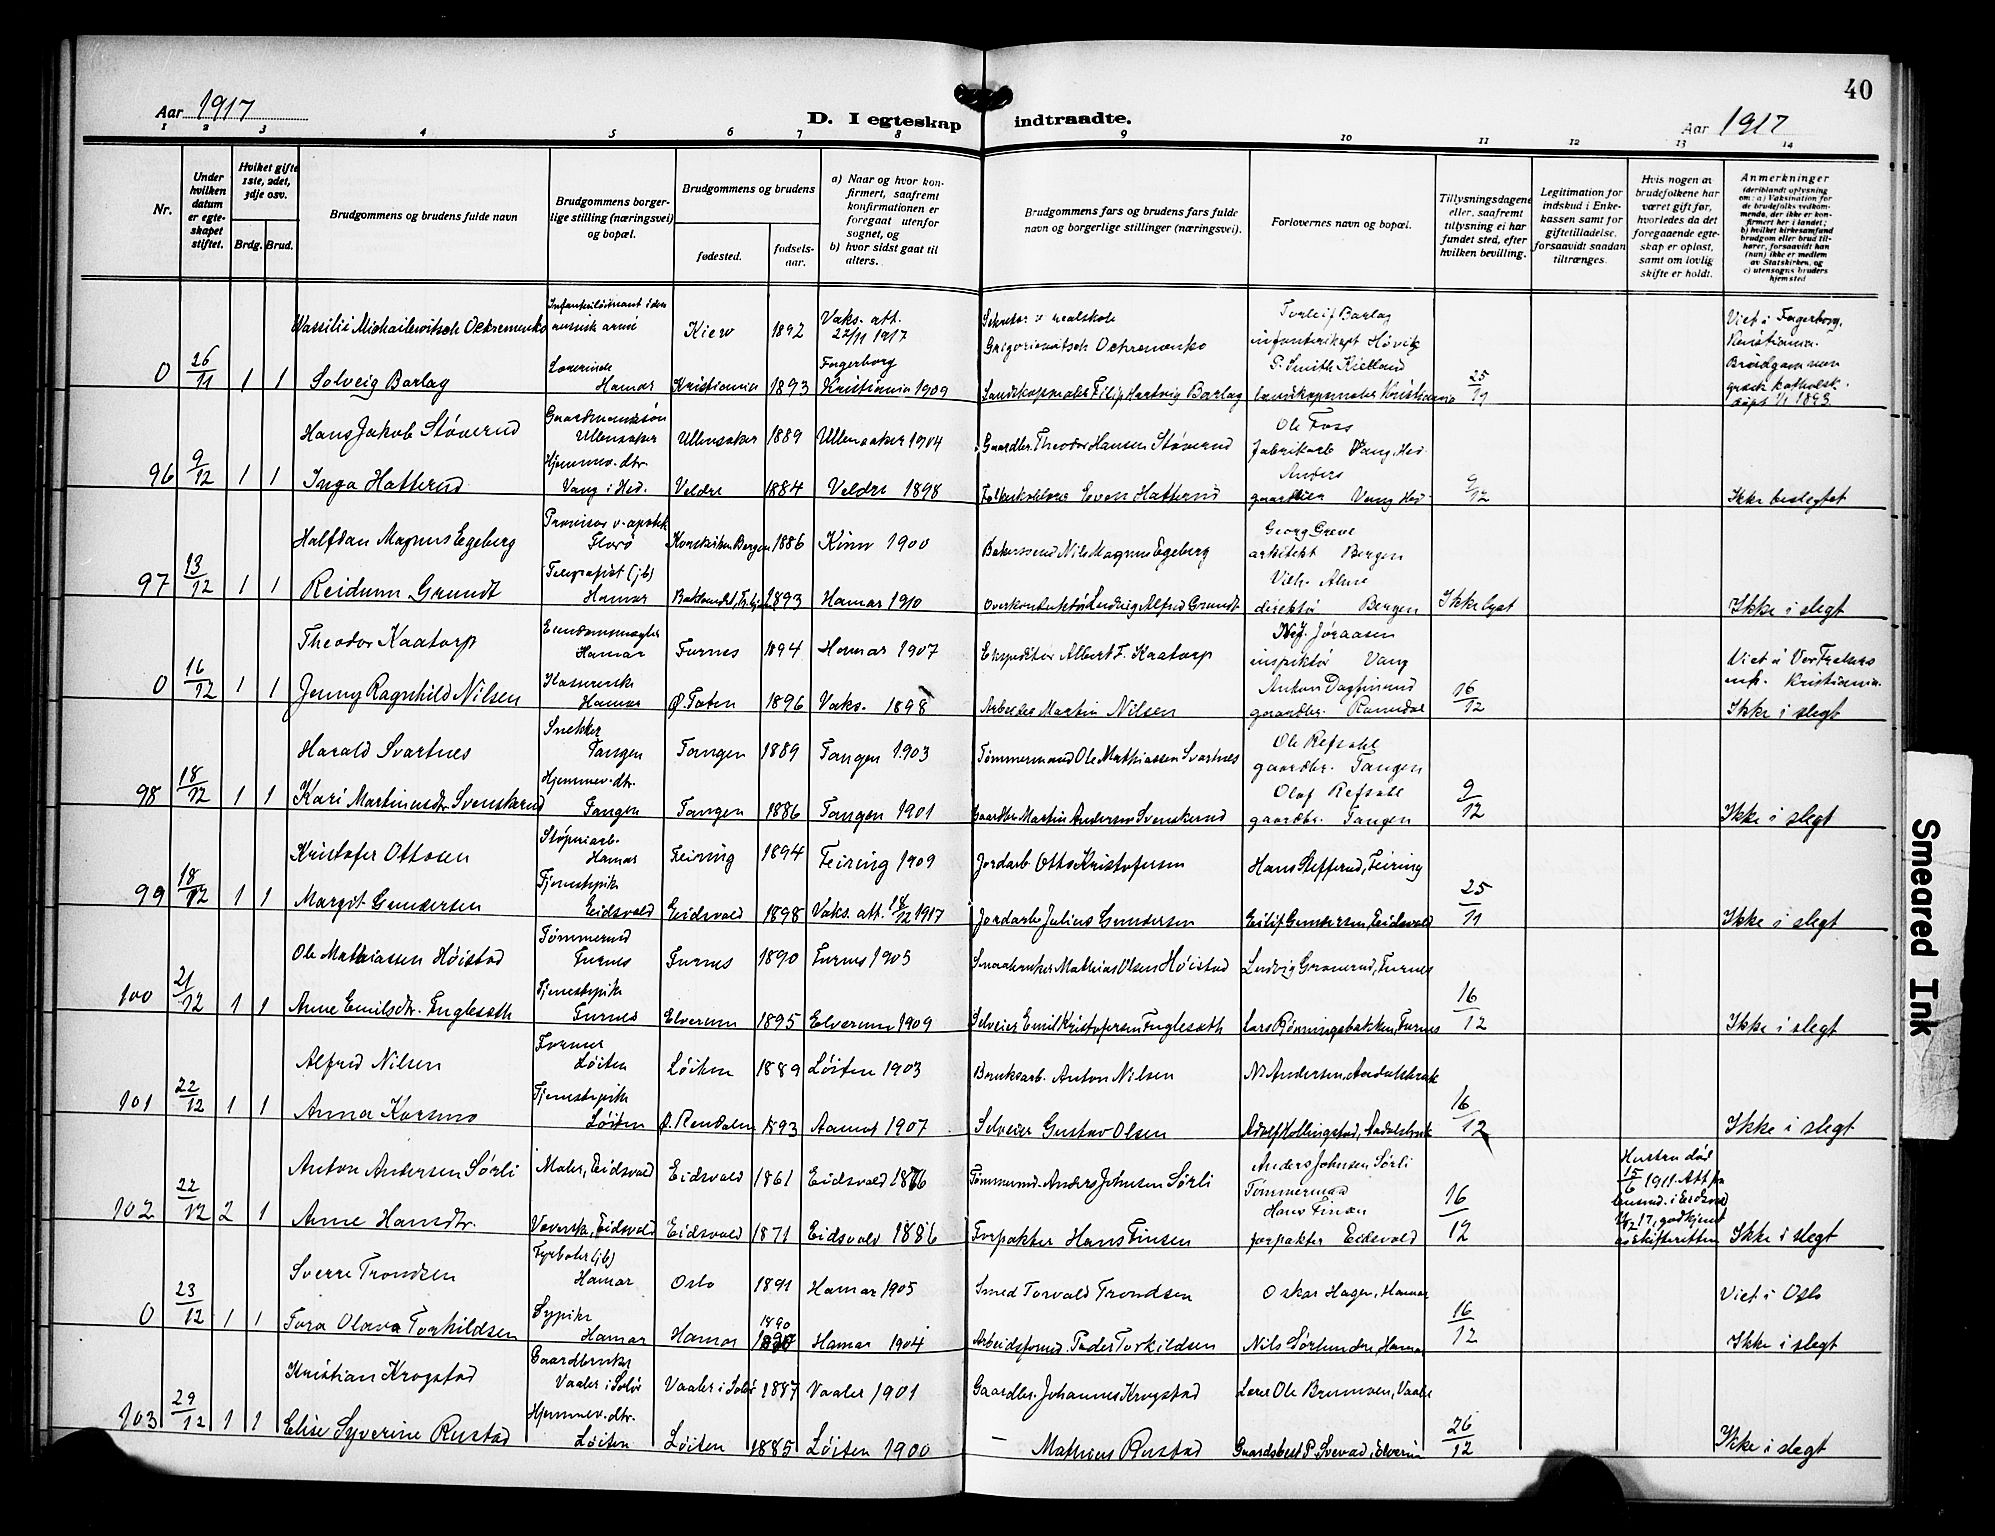 40
Aar 1917
D. I egteskap indtraadte.
Aar 1917
1 2 3 4 5 6 7 8 9 10 11 12 13 14
Nr.
Under hvilken datum er egteskapet stiftet.
Hvilket gifte 1ste, 2det, 3dje osv.
Brdg. Brud.
Brudgommens og brudens fulde navn
Brudgommens borgerlige stilling (næringsvei) og bopæl.
Brudgommens og brudens
fødested.
fødselsaar.
a) Naar og hvor konfirmert, saafremt konfirmationen er foregaat utenfor sognet, og
b) hvor sidst gaat til alters.
Brudgommens fars og brudens fars fulde navn og borgerlige stillinger (næringsvei).
Forlovernes navn og bopæl.
Tillysningsdagene eller, saafremt tillysning ei har fundet sted, efter hvilken bevilling.
Legitimation for indskud i Enkekassen samt for giftetilladelse, forsaavidt saadan tiltrænges.
Hvis nogen av brudefolkene har været gift før, hvorledes da det foregaaende egteskap er opløst, samt om lovlig skifte er holdt.
Anmerkninger (deriblandt oplysning om: a) Vaksination for de brudefolks vedkommende, der ikke er konfirmert her i landet; b) hvilket kirkesamfund brudgom eller brud tilhører, forsaavidt han (hun) ikke er medlem av Statskirken, og c) utensogns bruders hjemsted
Wassilii Michailewitsch Ochremenko Kiew 1892 Vaks. att. 22/11 1917 Sekretær v. realskole Grigoriewitsch Ochremenko Torleif Barlag Høvik Viet i Fagerborg, Kristiania. Brudgommen græsk katholsk. døpt 1/1 1893.
0 26/11 1 1 Solveig Barlag Hamar Kristiania 1893 Fagerborg Kristiania 1909 Landskapsmaler Filip Hartvig Barlag S. Smith Kielland landskapsmaler Kristiania 25/11
Hans Jakob Støverud Gaardmandssøn Ullensaker Ullensaker 1889 Ullensaker 1904 Gaardbr. Theodor Hansen Støverud Ole Foss fabrikarb Vang, Hed.
96 9/12 1 1 Inga Hatterud Hjemmev. dtr. Vang i Hed. Veldre 1884 Veldre 1898 Even Hatterud Anders Vang Hed. 9/12 Ikke beslegtet
Halfdan Magnus Egeberg Provisor v. apotek Florø Bergen 1886 Kinn 1900 Nils Magnus Egeberg Georg Greve arkitekt Bergen
97 13/12 1 1 Reidunn Grundt Telegrafist (jb) Hamar 1893 Hamar 1910 Overkonduktør Ludvig Alfred Grundt Vilh. direktør Bergen Ikke lyst Ikke i slegt
Theodor Kaatorp Eiendomsmægler Hamar Furnes 1894 Hamar 1907 Ekspeditør Albert F. Kaatorp Jøraasen inspektør Vang Viet i Vor Frelsers Kristiania.
0 16/12 1 1 Jenny Ragnhild Nilsen Kassererske Hamar Ø. Toten 1896 Vaks. 1898 Arbeider Martin Nilsen Anton gaardbr. Romedal 16/12 Ikke i slegt
Harald Svartnes Snekker Tangen Tangen 1889 Tangen 1903 Tømmermand Ole Mathiassen Svartnes Ole Refsahl gaardbr. Tangen
98 18/12 1 1 Kari Martinusdtr. Svenskerud Hjemmev. dtr. Tangen Tangen 1886 Tangen 1901 Gaardbr. Martin Andersen Svenskerud Olaf Refsahl gaardbr. Tangen 9/12 Ikke i slegt
Kristofer Ottosen Støperiarb. Hamar Feiring 1894 Feiring 1909 Jordarb. Otto Kristofersen Hans Steffenrud, Feiring
99 18/12 1 1 Margit Gundersen Tjenestepike Eidsvold Eidsvold 1898 Vaks. att. 18/12 1917 Jordarb. Julius Gundersen Eilif Gundersen, Eidsvold 25/11 Ikke i slegt
Ole Mathiassen Høistad Tømmermd Furnes Furnes 1890 Furnes 1905 Smaabruker Mathias Olsen Høistad Ludvig Granerud, Furnes
100 21/12 1 1 Anne Emilsdtr. Fuglesæth Tjenestepike Furnes Elverum 1895 Elverum 1909 Selveier Emil Kristofersen Fuglesæth Lars Rønningsbakken, Furnes 16/12 Ikke i slegt
Alfred Nilsen Former Løiten Løiten 1889 Løiten 1903 Bruksarb. Anton Nilsen N. Andersen, Aadalsbruk
101 22/12 1 1 Anna Karsmo Tjenestepike Løiten Ø. Rendalen 1893 Aamot 1907 Selveier Gustav Olsen Adolf Hollingstad, Aadalsbruk 16/12 Ikke i slegt
Anton Andersen Sørli Maler, Eidsvold Eidsvold 1861 Eidsvold 1876 Tømmermd. Anders Johnsen Sørli Anders Johnsen Sørli Tømmermand Hustru død 15/6 1911. Att. fra lensmd. i Eidsvold 17, godkjent av skifteretten
102 22/12 2 1 Anne Hansdtr. Væverske, Eidsvold Eidsvold 1871 Eidsvold 1886 Forpakter Hans Finsen Hans Finsen forpakter Eidsvold 16/12 Ikke i slegt
Sverre Trondsen Fyrbøter (jb) Hamar Oslo 1891 Hamar 1905 Smed Torvald Trondsen Oskar Hagen, Hamar Viet i Oslo
0 23/12 1 1 Tora Olava Torkildsen Sypike Hamar Hamar 1890 Hamar 1904 Arbeidsformd. Peder Torkildsen Nils Sørlundre, Hamar 16/12 Ikke i slegt
Kristian Krogstad Gaardbruker Vaaler i Solør Vaaler i Solør 1887 Vaaler 1901 Gaardbr. Johannes Krogstad Lærer Ole Brunmoen, Vaaler
103 29/12 1 1 Elise Syverine Rustad Hjemmev. dtr. Løiten Løiten 1885 Løiten 1900 — Mathias Rustad Elverum 26/12 Ikke i slegt
Smeared Ink